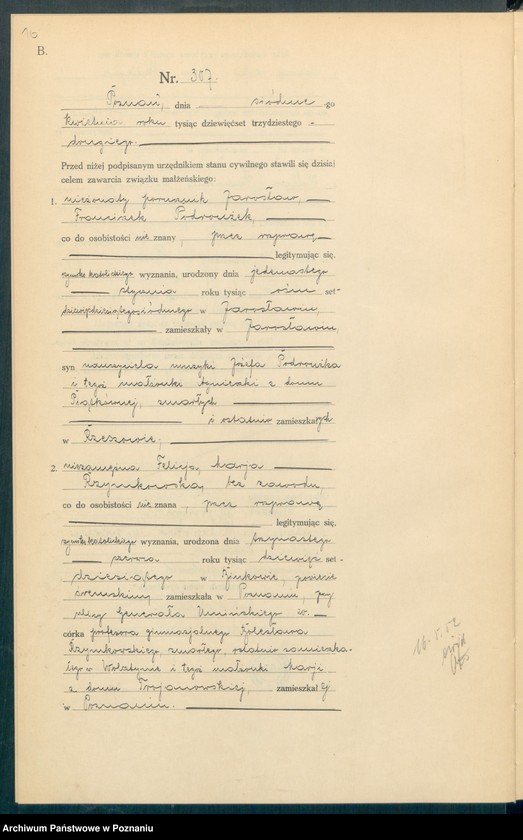 16
B.
Nr. 307.
Poznań, dnia siódme -go
kwietnia roku tysiąc dziewięćset trzydziestego -
drugiego.
Przed niżej podpisanym urzędnikiem stanu cywilnego stawili się dzisiaj
celem zawarcia związku małżeńskiego:
1. nieżonaty porucznik Jarosław,
Franciszek Podroużek,
co do osobistości nie znany, przez rozprawę
legitymując się,
rzymsko katolickiego wyznania, urodzony dnia jedenastego
stycznia roku tysiąc ośm set-
dziewięćdziesiątego siódmego w Jarosławiu,
zamieszkały w Jarosławiu,
syn nauczyciela muzyki Józefa Podroużka
i tegoż małżonki z domu
zmarłych
i ostatnio zamieszkałych
w Rzeszowie;
2. niezamężna Felicja, Marja
Rzymkowska, bez zawodu,
co do osobistości nie znana, przez rozprawę
legitymując się,
rzymsko katolickiego wyznania, urodzona dnia trzynastego
marca roku tysiąc dziewięć set-
dziesiątego w powiecie
śremskim, zamieszkała w Poznaniu, przy
ulicy Generała Umińskiego
córka profesora gimnazjalnego Bolesława
Rzymkowskiego, zmarłego, ostatnio zamieszka-
łego w Wolsztynie i tegoż małżonki Marji
z domu Trojanowskiej, zamieszkałej
w Poznaniu.
16. 5. 52
Archiwum Państwowe w Poznaniu